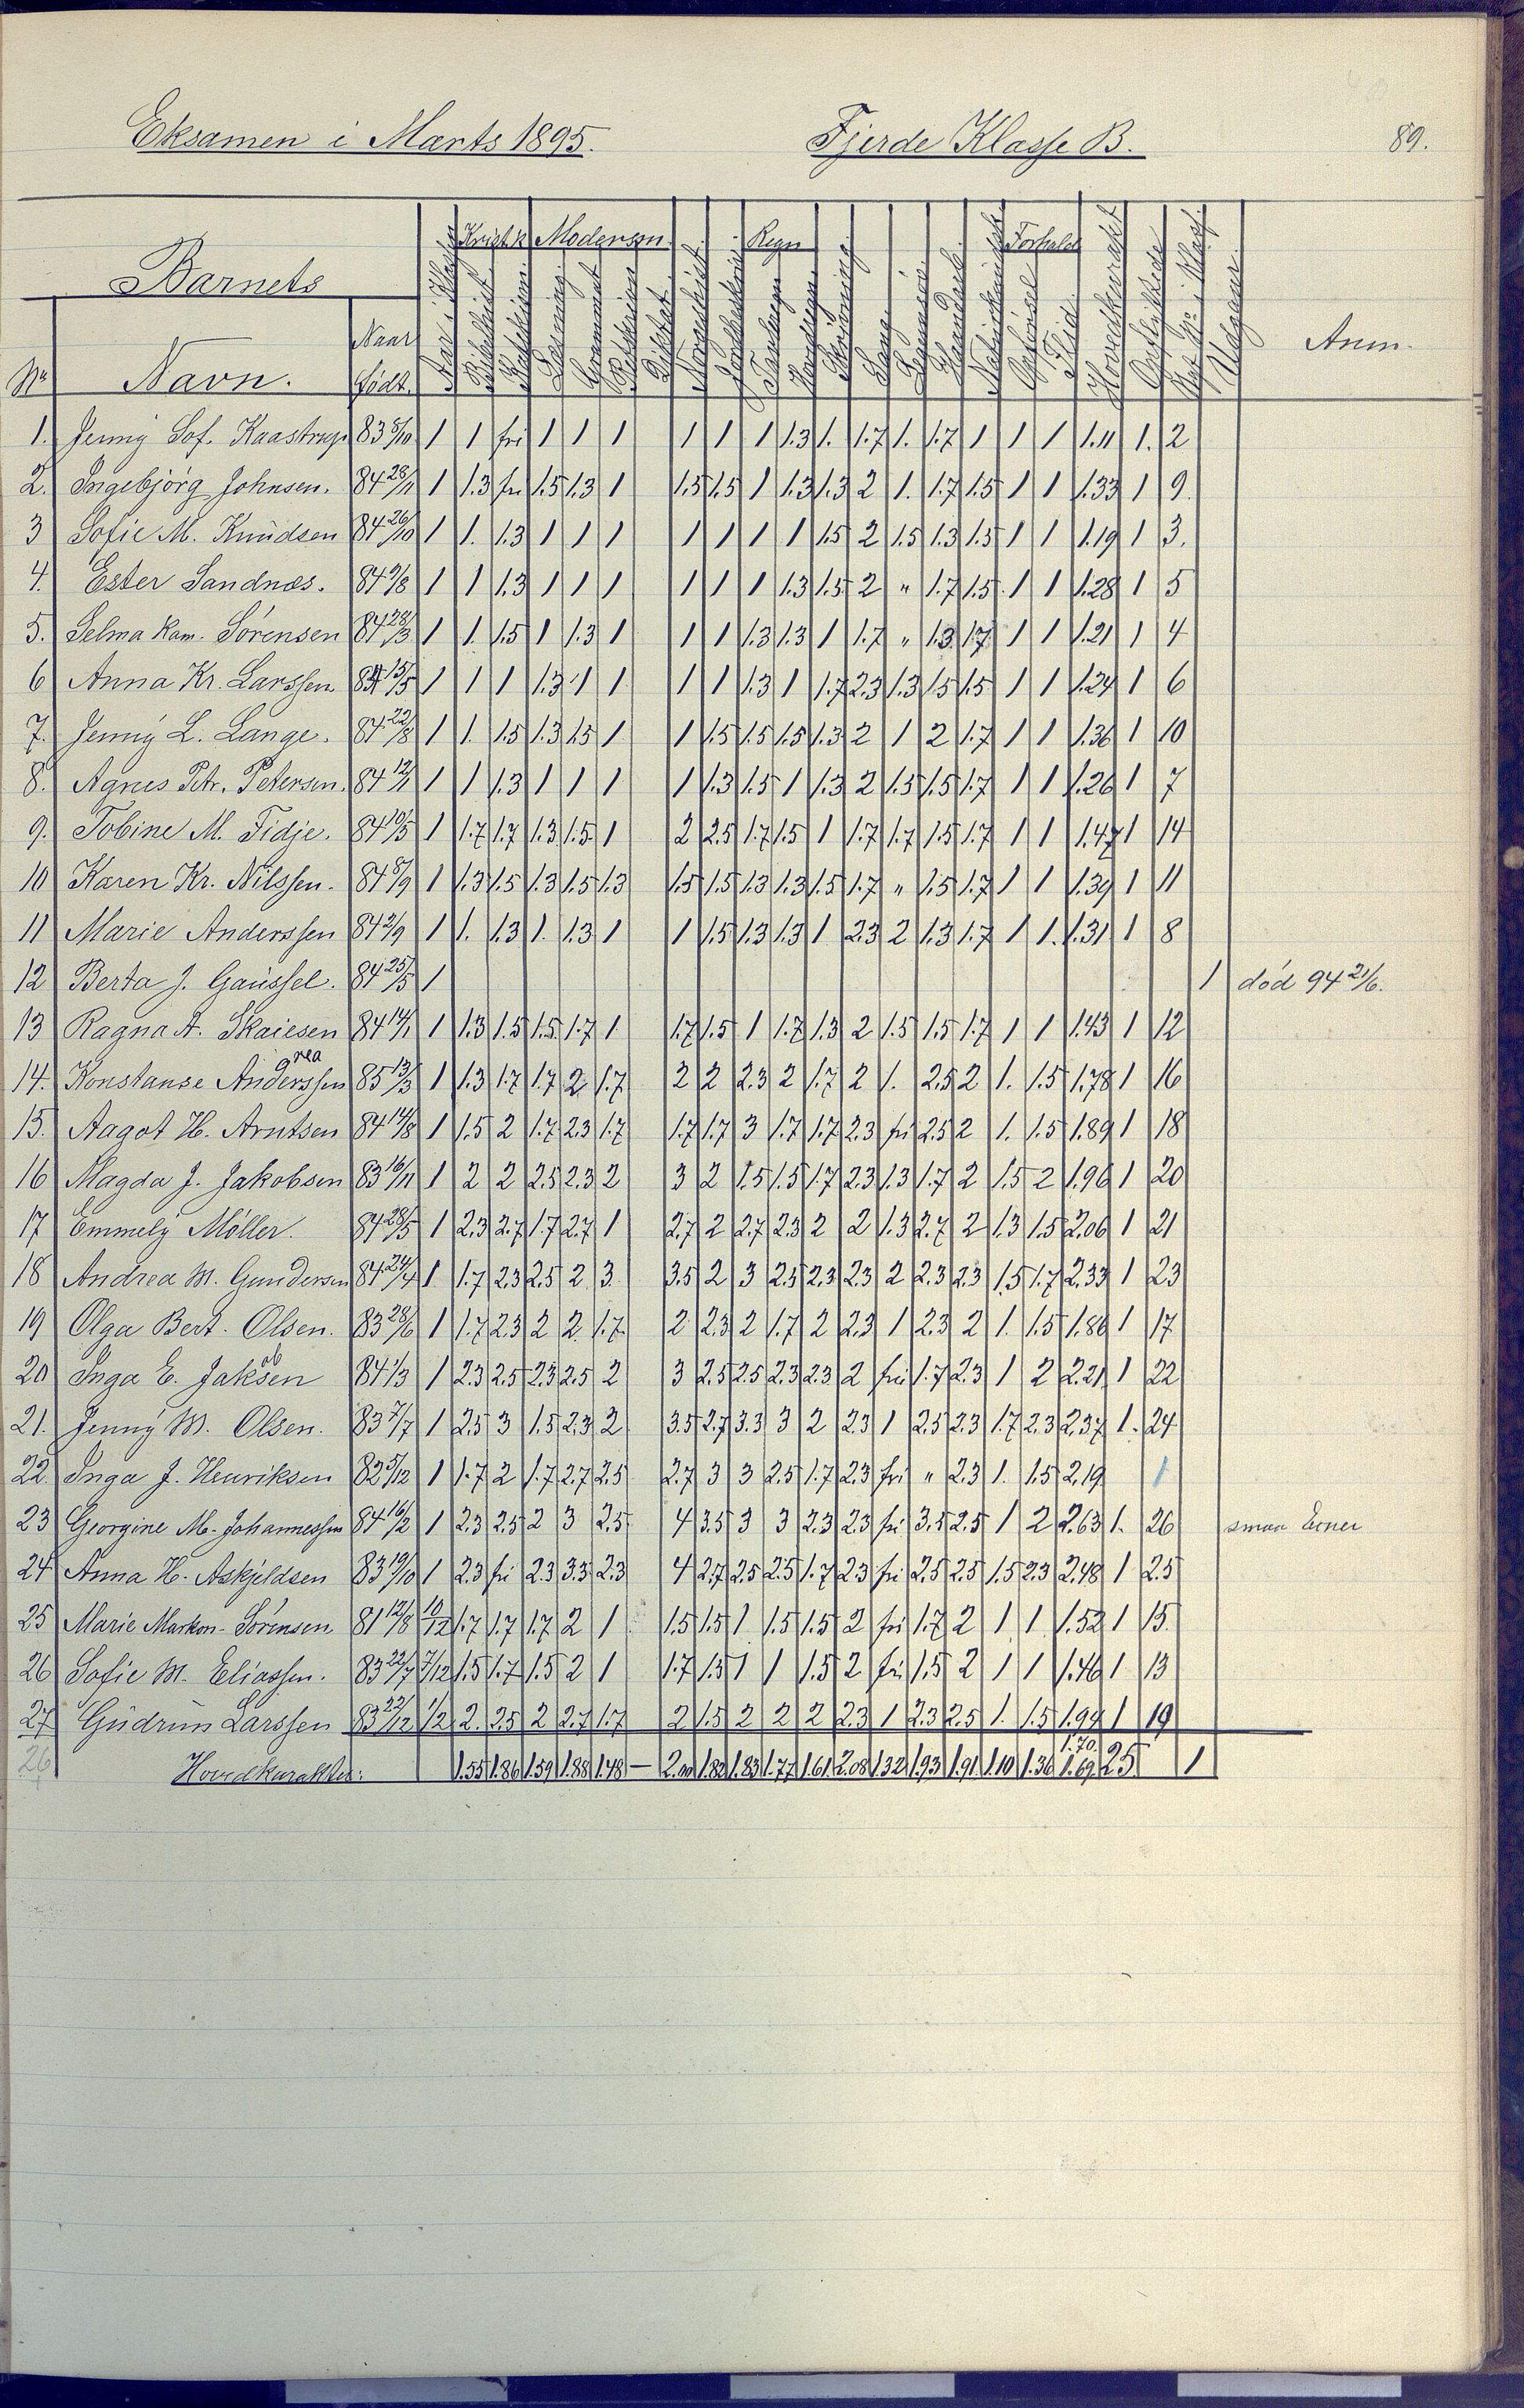 Eksamen i Marts 1895. Fjerde Klasse B. 89.
Kristk. Modersm. Regn Forhold
Barnets
Aar i Klassen Bibelhist. Læsning Grammat Diktat Tavleregn Sang Haandarb. Opførsel Flid Hovedkarakt. Opflyttede Udgaaet
Nr Navn. Naar født. Anm.
1. Jenny Sof. Kaastrup 83 8/10 1 1 fri 1 1 1 1 1 1 1.3 1. 1.7 1. 1.7 1 1 1 1.11 1. 2
2. Ingebjörg Johnsen. 84 28/11 1 1.3 fri 1.5 1.3 1 1.5 1.5 1 1.3 1.3 2 1. 1.7 1.5 1 1 1.33 1 9.
3 Sofie M. Knudsen 84 26/10 1 1. 1.3 1 1 1 1 1 1 1 1.5 2 1.5 1.3 1.5 1 1 1.19 1 3.
4. Ester Sandnæs. 84 9/8 1 1 1.3 1 1 1 1 1 1 1.3 1.5 2 " 1.7 1.5 1 1 1.28 1 5
5. Selma Kam. Sörensen 84 28/3 1 1. 1.5 1 1.3 1 1 1 1.3 1.3 1 1.7 " 1.3 1.7 1 1 1.21 1 4
6 Anna Kr. Larssen 84 15/5 1 1 1 1.3 1 1 1 1 1.3 1 1.7 2.3 1.3 1.5 1.5 1 1 1.24 1 6
7. Jenny L. Lange. 84 22/8 1 1. 1.5 1.3 1.5 1 1 1.5 1.5 1.5 1.3 2 1 2 1.7 1 1 1.36 1 10
8. Agnes Petr. Petersen. 84 12/1 1 1 1.3 1 1 1 1 1.3 1.5 1 1.3 2 1.5 1.5 1.7 1 1 1.26 1 7
9. Tobine M. Fidje. 84 10/5 1 1.7 1.7 1.3 1.5 1 2 2.5 1.7 1.5 1 1.7 1.7 1.5 1.7 1 1 1.47 1 14
10 Karen Kr. Nilssen. 84 8/9 1 1.3 1.5 1.3 1.5 1.3 1.5 1.5 1.3 1.3 1.5 1.7 " 1.5 1.7 1 1 1.39 1 11
11 Marie Anderssen 84 2/9 1 1. 1.3 1. 1.3 1 1 1.5 1.3 1.3 1 2.3 2 1.3 1.7 1 1. 1.31 1 8
12 Berta J. Gaussel. 84 25/5 1 1 död 94 21/6.
13 Ragna A. Skaiesen 84 14/1 1 1.3 1.5 1.5 1.7 1 1.7 1.5 1 1.7 1.3 2 1.5 1.5 1.7 1 1 1.43 1 12
rea
14. Konstanse Anderssen 85 13/3 1 1.3 1.7 1.7 2 1.7 2 2 2.3 2 1.7 2 1. 2.5 2 1. 1.5 1.78 1 16
15. Aagot H. Arntsen 84 14/8 1 1.5 2 1.7 2.3 1.7 1.7 1.7 3 1.7 1.7 2.3 fri 2.5 2 1. 1.5 1.89 1 18
16 Magda J. Jakobsen 83 16/11 1 2 2 2.5 2.3 2 3 2 1.5 1.5 1.7 2.3 1.3 1.7 2 1.5 2 1.96 1 20
17 Emmely Möller. 84 28/5 1 2.3 2.7 1.7 2.7 1 2.7 2 2.7 2.3 2 2 1.3 2.7 2 1.3 1.5 2.06 1 21
18 Andrea M. Gundersen 84 24/4 1. 1.7 2.3 2.5 2 3 3.5 2 3 2.5 2.3 2.3 2 2.3 2.3 1.5 1.7 2.33 1 23
19 Olga Bert. Olsen. 83 28/6 1 1.7 2.3 2 2 1.7 2 2.3 2 1.7 2 2.3 1 2.3 2 1. 1.5 1.86 1 17
ob
20 Inga E. Jaksen 84 1/3 1 2.3 2.5 2.3 2.5 2 3 2.5 2.5 2.3 2.3 2 fri 1.7 2.3 1 2 2.21 1 22
21. Jenny M. Olsen. 83 7/7 1 2.5 3 1.5 2.3 2 3.5 2.7 3.3 3 2 2.3 1 2.5 2.3 1.7 2.3 2.37 1. 24
22. Inga J. Henriksen 82 5/12 1 1.7 2 1.7 2.7 2.5 2.7 3 3 2.5 1.7 2.3 fri " 2.3 1. 1.5 2.19 1
23 Georgine M. Johannessen 84 16/2 1 2.3 2.5 2 3 2.5 4 3.5 3 3 2.3 2.3 fri 3.5 2.5 1 2 2.63 1. 26 smaa Evner
24 Anna H. Askjeldsen 83 19/10 1 2.3 fri 2.3 3.3 2.3 4 2.7 2.5 2.5 1.7 2.3 fri 2.5 2.5 1.5 2.3 2.48 1 25
25 Marie Markon. Sörensen 81 12/8 10/12 1.7 1.7 1.7 2 1 1.5 1.5 1 1.5 1.5 2 fri 1.7 2 1 1 1.52 1 15.
26 Sofie M. Eliassen. 83 22/7 7/12 1.5 1.7 1.5 2 1 1.7 1.5 1 1 1.5 2 fri 1.5 2 1 1 1.46 1 13
27 Gudrun Larssen 83 22/12 1/2 2. 2.5 2 2.7 1.7 2 1.5 2 2 2 2.3 1 2.3 2.5 1. 1.5 1.94 1 19
1.70
26 Hovedkarakter: 1.55 1.86 1.59 1.88 1.48 — 2.00 1.82 1.83 1.77 1.61 2.08 1.32 1.93 1.91 1.10 1.36 1.69 25 1